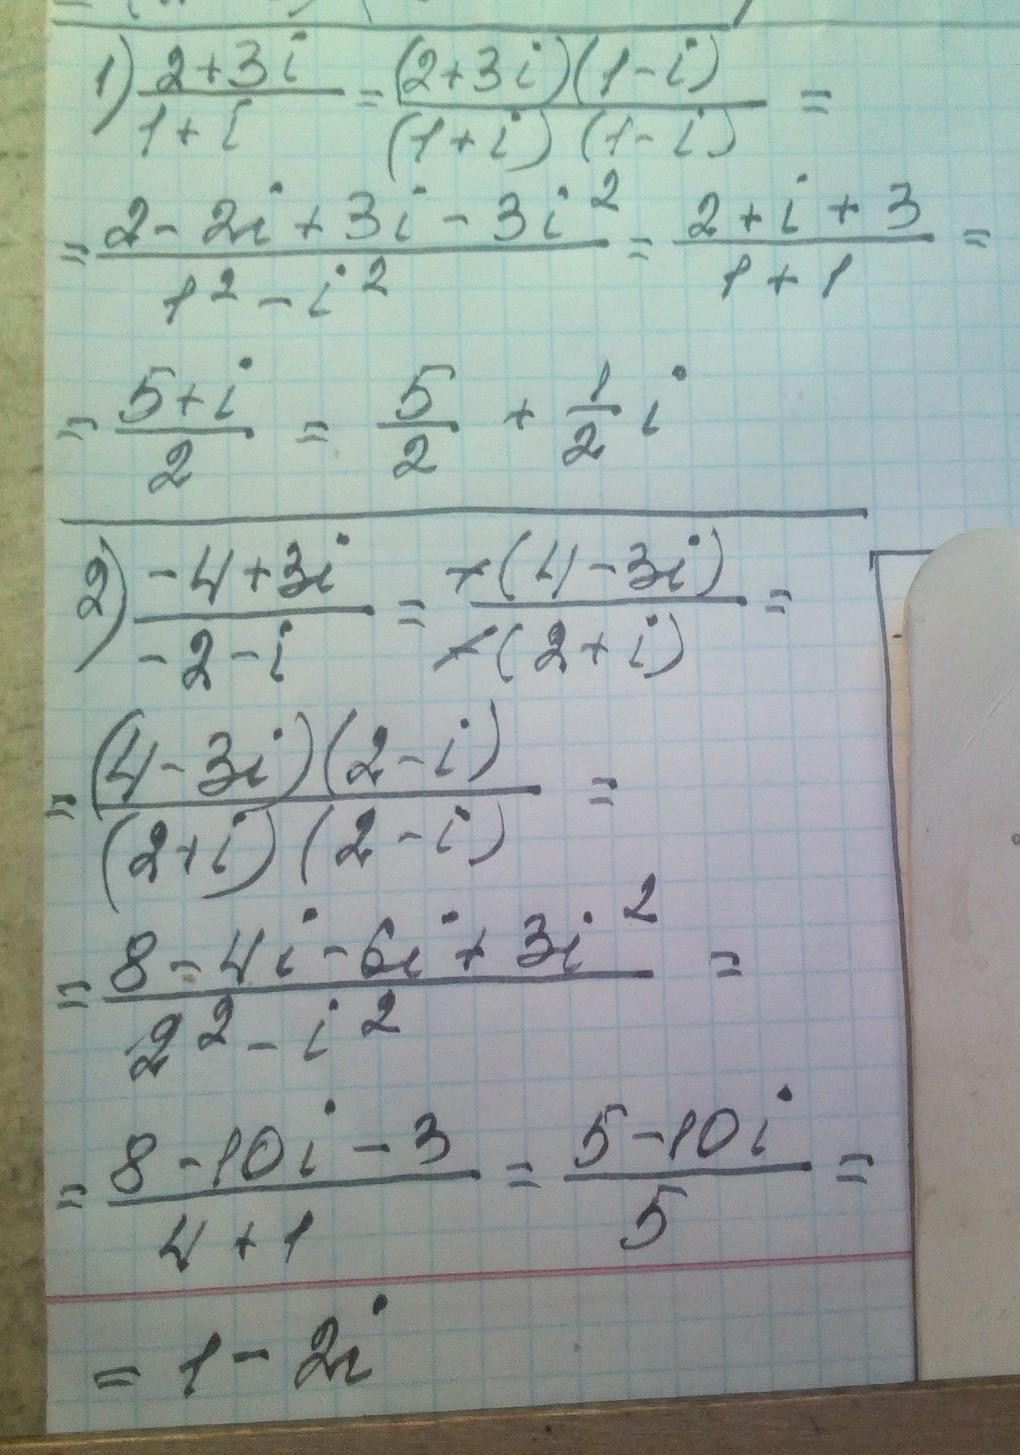 1) (2+3i)/(1+i) = ((2+3i)(1-i))/((1+i)(1-i)) =
= (2-2i+3i-3i²)/(1²-i²) = (2+i+3)/(1+1) =
= (5+i)/2 = 5/2 + 1/2 i
2) (-4+3i)/(-2-i) = (-(4-3i))/(-(2+i)) =
= ((4-3i)(2-i))/((2+i)(2-i)) =
= (8-4i-6i+3i²)/(2²-i²) =
= (8-10i-3)/(4+1) = (5-10i)/5 =
= 1-2i